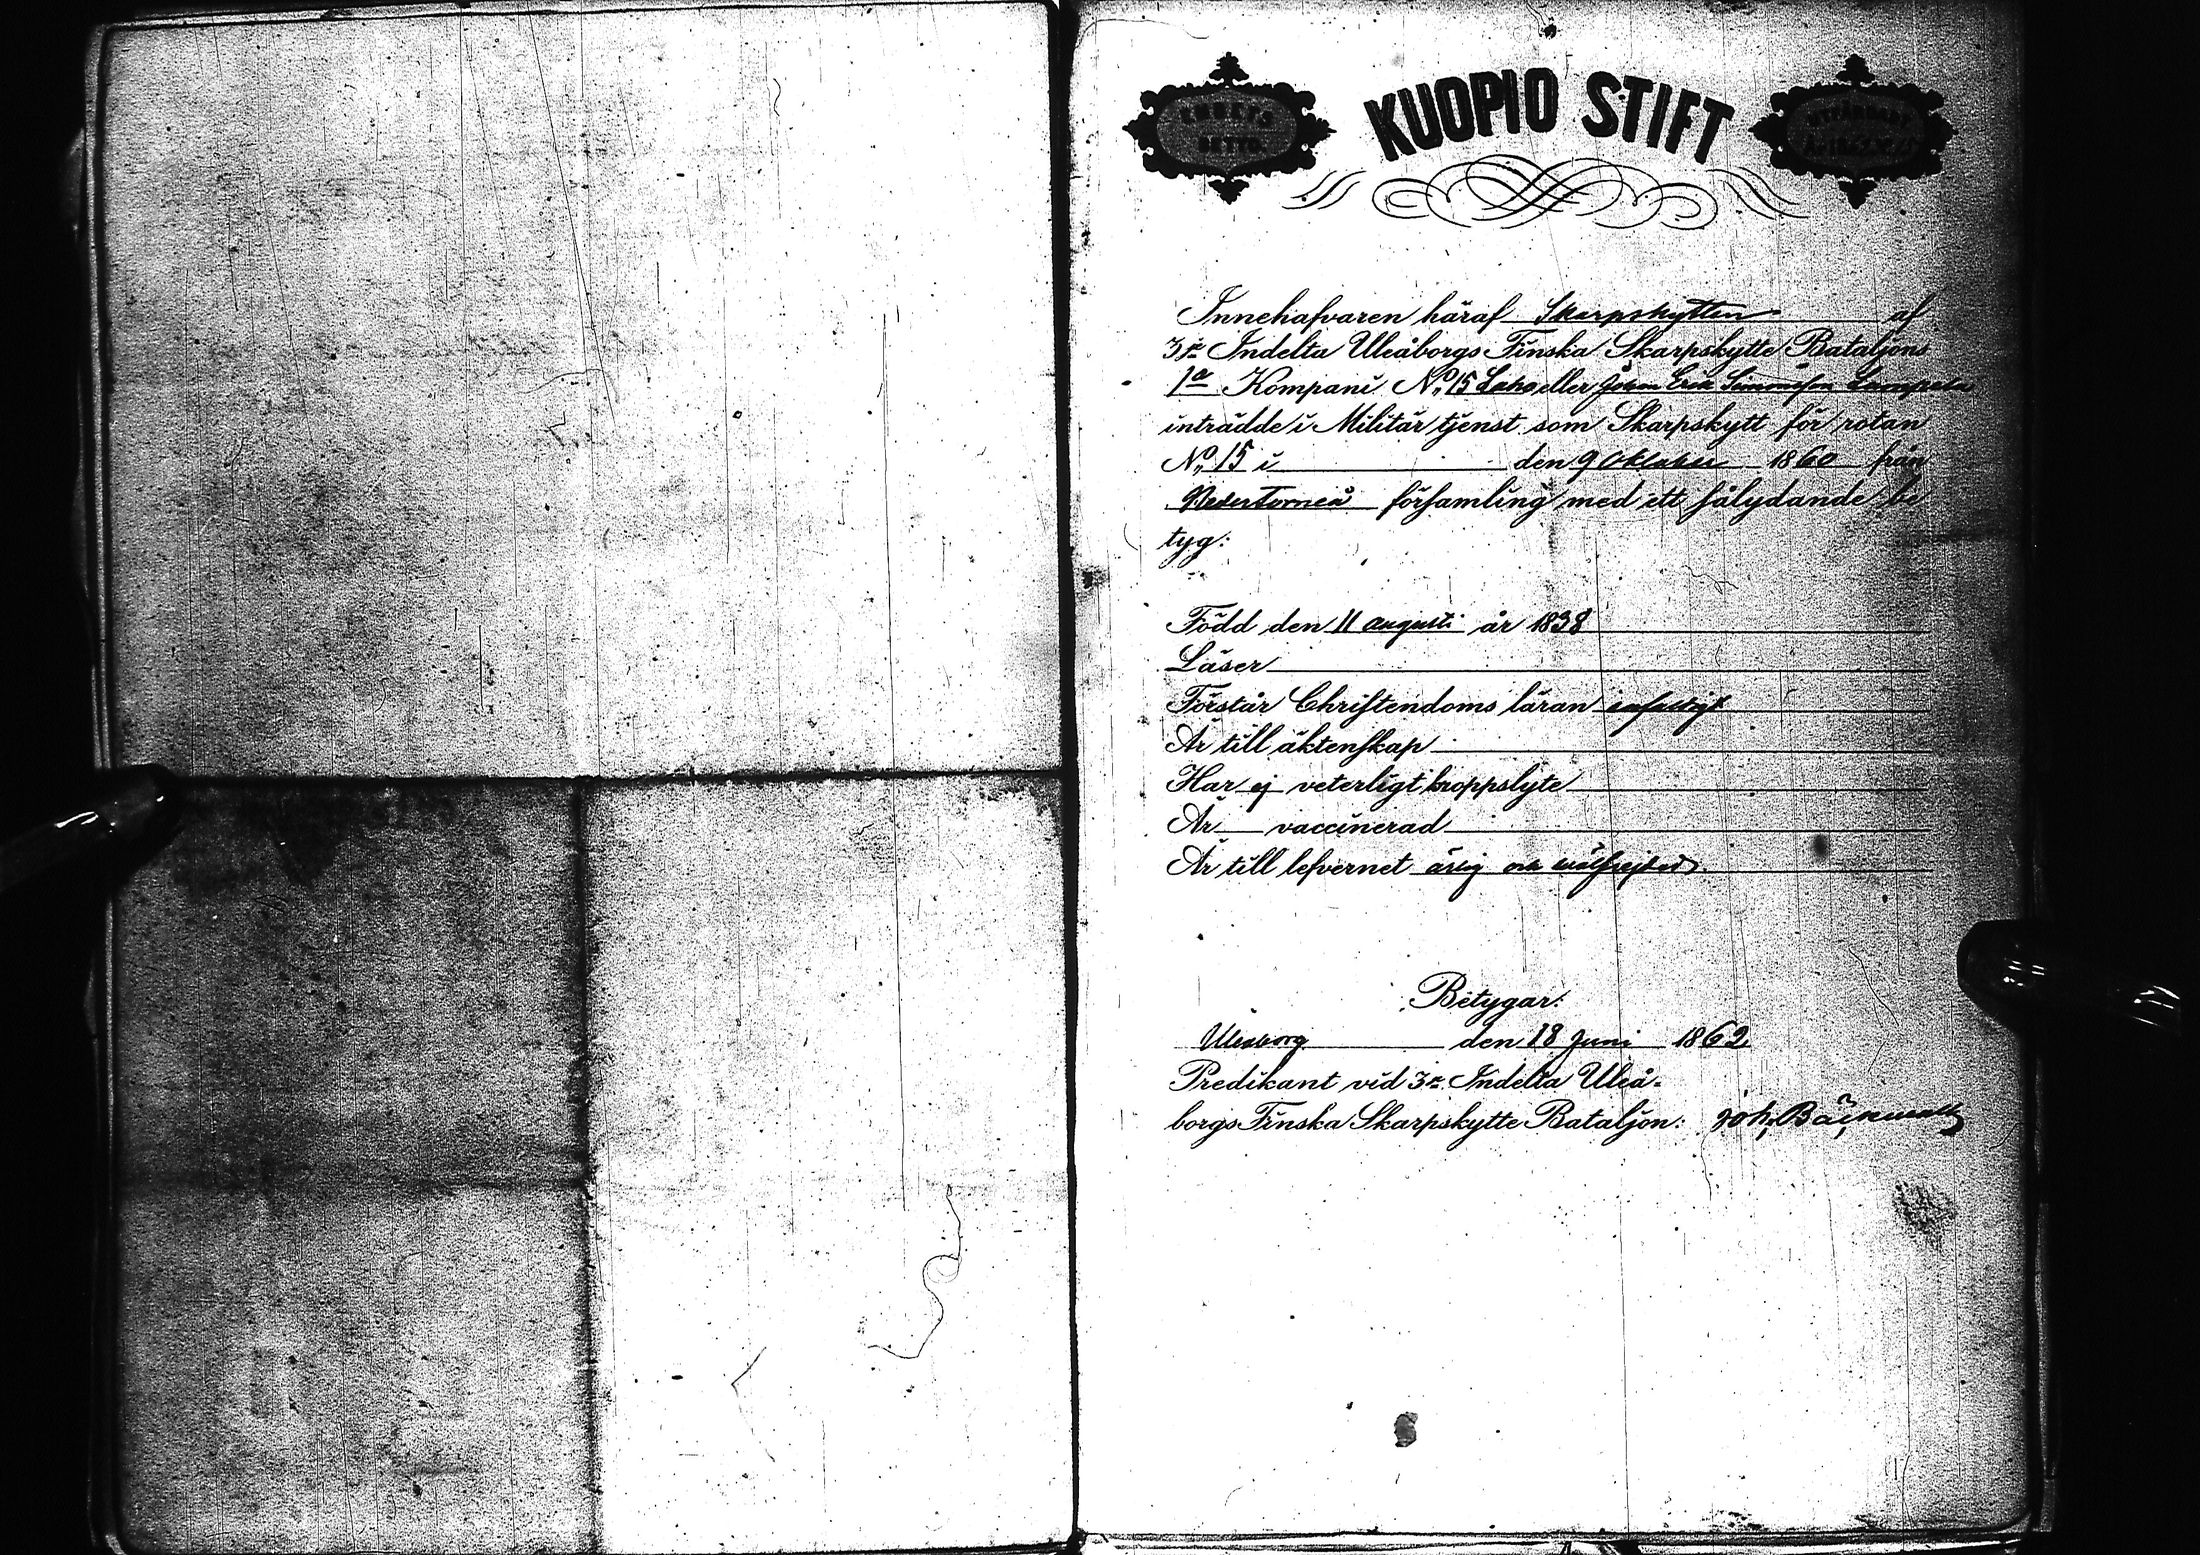 EMBETS
BETYG.
KUOPIO STIFT
Innehafvaren häraf Skarpskytten af
3e Indelta Uleåborgs Finska Skarpskytte Bataljons
1a Kompani No 15 eller Johan Erik Simonsson
inträdde i Militär tjenst som Skarpskytt för rotan
No 15 i den 9 Oktober 1860 från
NederTorneå församling med ett sålydande be
tyg:
Född den 11 augusti år 1838
Läser
Förstår Christendoms läran enfaldigt
Är till äktenskap
Har ej veterligt kroppslyte
Är vaccinerad
Är till lefvernet ärlig och välfrejdad.
Betygar:
Uleåborg den 18 Juni 1862
Predikant vid 3e Indelta Uleå-
borgs Finska Skarpskytte Bataljon: Joh. Bäckvall